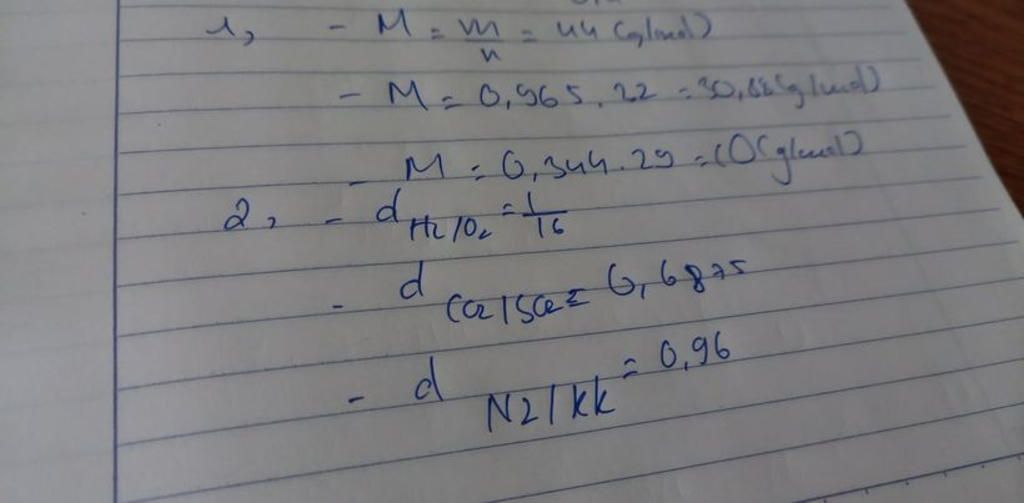 1, - M = m/n = 44 (g/mol)
- M = 0,965.22 = 30,88(g/mol)
- M = 0,344.29 = 10(g/mol)
2, - d H2/O2 = 1/16
- d CO2/SO2 = 0,6875
- d N2/kk = 0,96